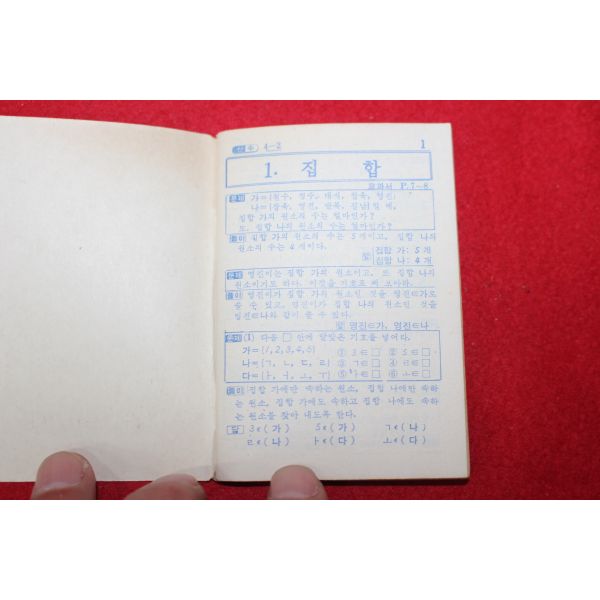 산수 4-2 1
1. 집 합
교과서 P.7~8
문제 가={철수, 정수, 태식, 창욱, 영진}
나={창욱, 영진, 일 때,
집합 가의 원소의 수는 얼마인가?
또, 집합 나의 원소의 수는 얼마인가?
풀이 집합 가의 원소의 수는 5개이고, 집합 나의
원소의 수는 4개이다.
답 집합 가: 5개
집합 나: 4개
문제 영진이는 집합 가의 원소이고, 또 집합 나의
원소이기도 하다. 이것을 기호로 써 보아라.
풀이 영진이가 집합 가의 원소인 것을 영진∈가로
쓸 수 있고, 영진이가 집합 나의 원소인 것을
영진∈나와 같이 쓸 수 있다.
답 영진∈가, 영진∈나
문제 (1) 다음 □ 안에 알맞은 기호를 넣어라.
가={1, 2, 3, 4, 5} ① 3∈□ ② 5∈□
나={ㄱ, ㄴ, ㄷ, ㄹ} ③ ㄱ∈□ ④ ㄹ∈□
다={ㅏ, ㅓ, ㅗ, ㅜ} ⑤ ㅏ∈□ ⑥ ㅗ∈□
풀이 집합 가에만 속하는 원소, 집합 나에만 속하
는 원소, 집합 가에도 속하고 집합 나에도 속하
는 원소를 찾아 내도록 한다.
답 3∈(가) 5∈(가) ㄱ∈(나)
ㄹ∈(나) ㅏ∈(다) ㅗ∈(다)